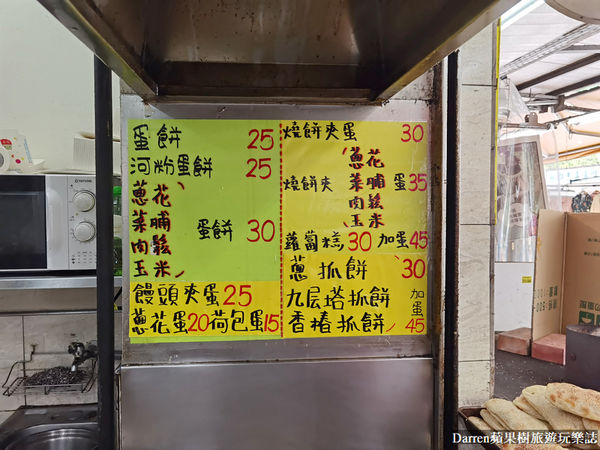 蛋餅 25
河粉蛋餅 25
蔥花
菜脯
肉鬆
玉米
蛋餅 30
饅頭夾蛋 25
蔥花蛋 20 荷包蛋 15
燒餅夾蛋 30
燒餅夾
蔥花
菜脯
肉鬆
玉米
蛋 35
蘿蔔糕 30 加蛋 45
蔥抓餅 30
九层塔抓餅
香椿抓餅
加蛋 45
Darren蘋果樹旅遊玩樂誌